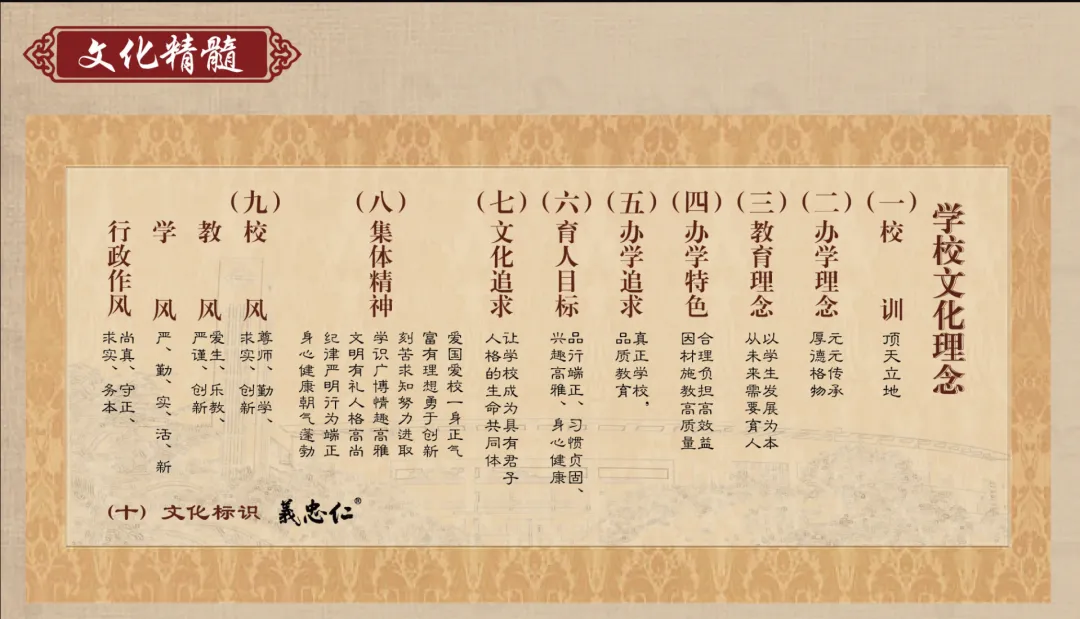 文化精髓
学校文化理念
(一)校训
顶天立地
(二)办学理念
元元传承
厚德格物
(三)教育理念
以学生发展为本
从未来需要育人
(四)办学特色
合理负担高效益
因材施教高质量
(五)办学追求
真正学校,
品质教育
(六)育人目标
品行端正、习惯贞固、
兴趣高雅、身心健康
(七)文化追求
让学校成为具有君子
人格的生命共同体
(八)集体精神
爱国爱校一身正气
富有理想勇于创新
刻苦求知努力进取
学识广博情趣高雅
文明有礼人格高尚
纪律严明行为端正
身心健康朝气蓬勃
(九)校风
尊师、勤学、
求实、创新
教风
爱生、乐教、
严谨、创新
学风
严、勤、实、活、新
行政作风
尚真、守正、
求实、务本
(十)文化标识 義忠仁®